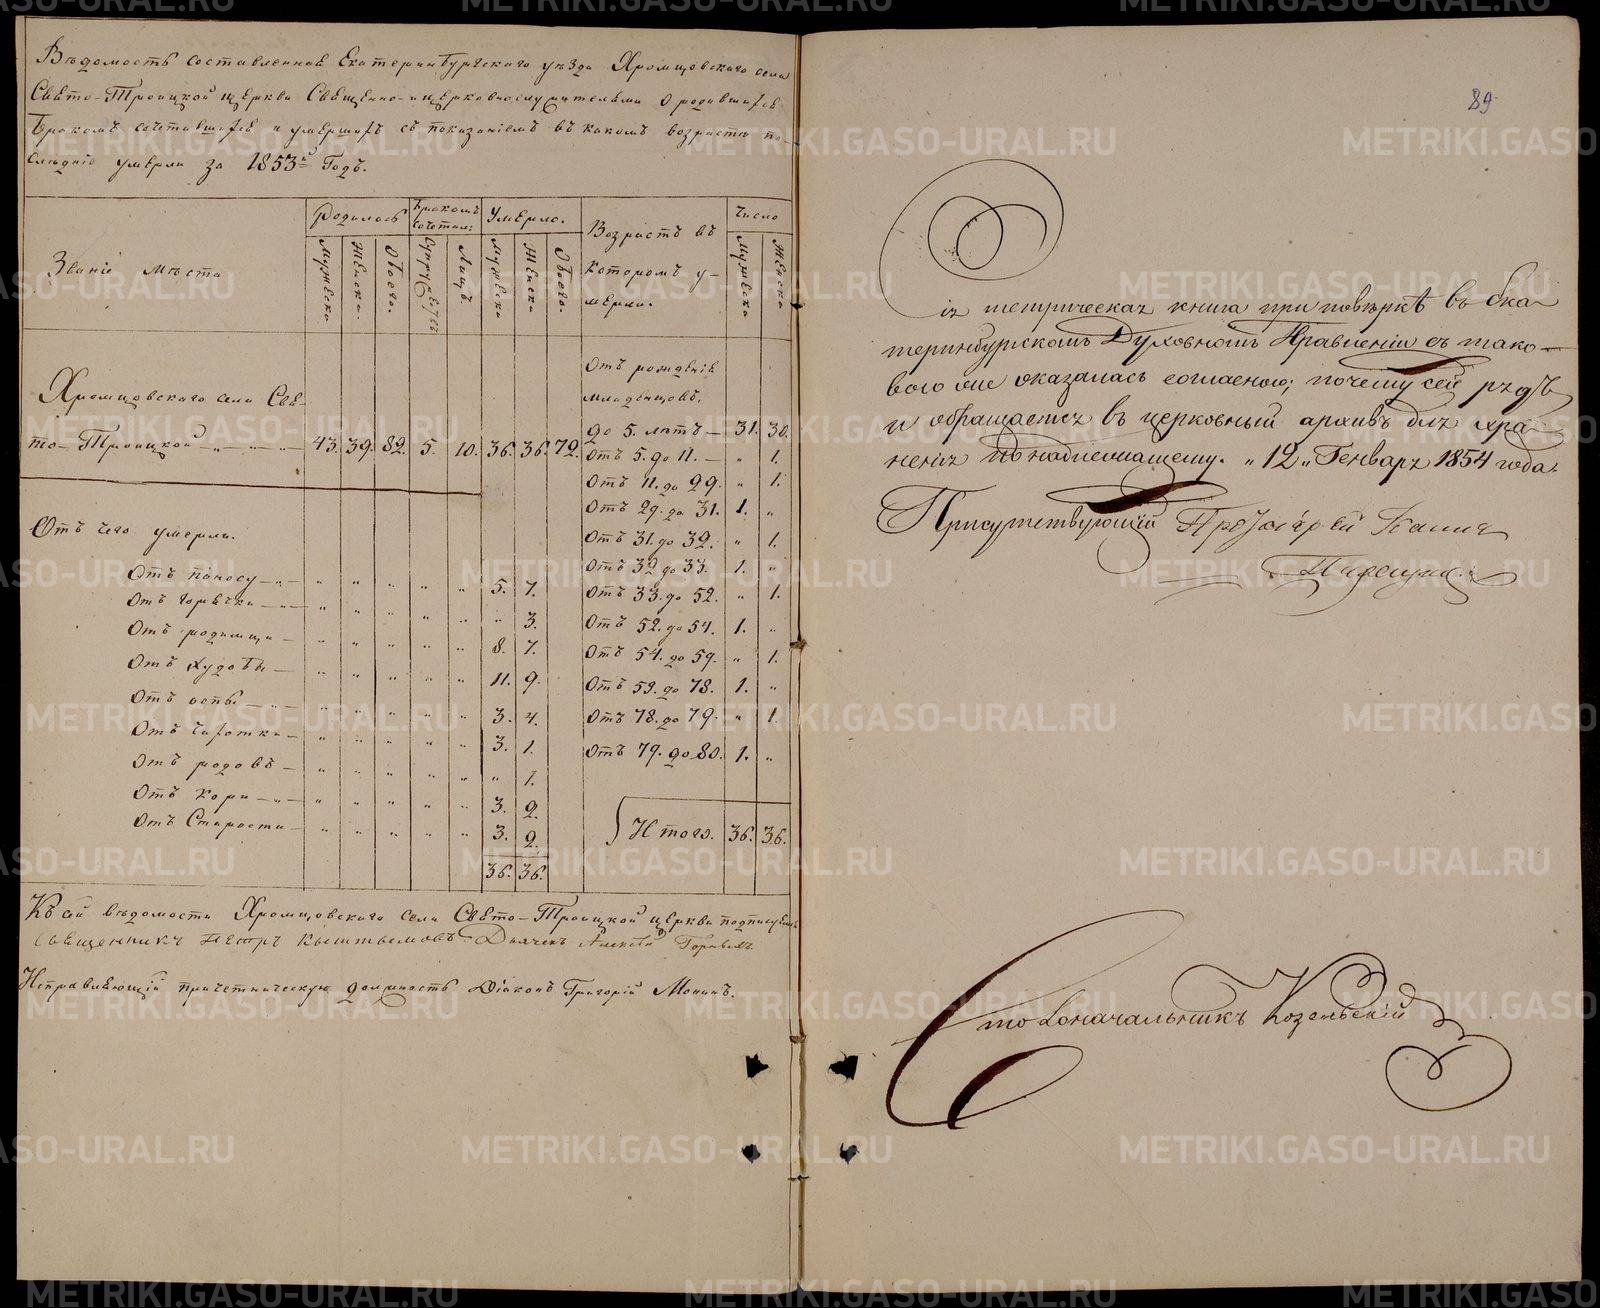 Вѣдомость составленная Екатеринбургскаго уѣзда Хромцовскаго села
Свято-Троицкой церкви Священно-и церковнослужителями о родившихся
Бракомъ сочетавшихся и умершихъ съ показаніемъ въ какомъ возрастѣ по-
слѣдніе умерли за 1853й Годъ.
Званіе мѣста
Родилось
Бракомъ сочетал:
Умерло.
Возрастъ въ которомъ у-мерли.
Число
Мужеска
Женска.
Обоего.
Супружествъ
Лицъ.
Мужеска
Женска
Обоего.
Мужеска
Женска
Хромцовскаго села Свя-
то-Троицкой 43. 39. 82. 5. 10. 36. 36. 72.
Отъ рожденія
младенцовъ,
до 5. лѣтъ 31. 30.
Отъ 5. до 11. „ 1.
Отъ 11. до 29. „ 1.
Отъ 29. до 31. 1. „
Отъ 31. до 32. „ 1.
Отъ 32 до 33. 1. „
Отъ 33. до 52. „ 1.
Отъ 52. до 54. 1. „
Отъ 54. до 59. „ 1.
Отъ 59. до 78. 1. „
Отъ 78. до 79. „ 1.
Отъ 79. до 80. 1. „
Итого. 36. 36.
Отъ чего умерли.
Отъ поносу „ „ „ „ „ 5. 7.
Отъ горячки „ „ „ „ „ „ 3.
Отъ родимца „ „ „ „ „ 8. 7.
Отъ худобы „ „ „ „ „ 11. 9.
Отъ оспы „ „ „ „ „ 3. 4.
Отъ чахотки „ „ „ „ „ 3. 1.
Отъ родовъ „ „ „ „ „ „ 1.
Отъ кори „ „ „ „ „ 3. 2.
Отъ Старости „ „ „ „ „ 3. 2.
36. 36.
Къ сей вѣдомости Хромцовскаго села Свято-Троицкой церкви подписуемся
Священникъ Петръ Кыштымовъ Дьячекъ Алексѣй
Исправляющій причетническую должность Діаконъ Григорій Мокинъ.
89
Сія метрическая книга при повѣркѣ въ Ека-
теринбургскомъ Духовномъ Правленіи съ тако-
вою оне оказалась согласною; почему сей
и обращается въ церковный архивъ для хра-
ненія по надлежащему. „12„ Генваря 1854 года.
Присутствующій Протоіерей
Столоначальникъ Козельскій
METRIKI.GASO-URAL.RU